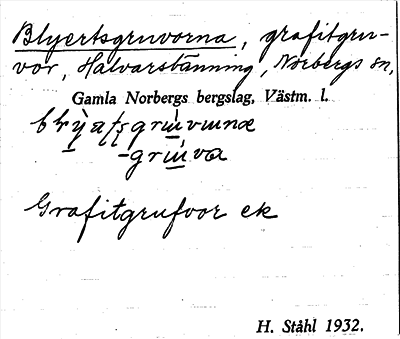 Blyertsgruvorna, grafitgru-
vor, Halvarsbänning, Norbergs sn,
Gamla Norbergs bergslag, Västm. l.
-gruva
Grafitgrufvor ek
H. Ståhl 1932.